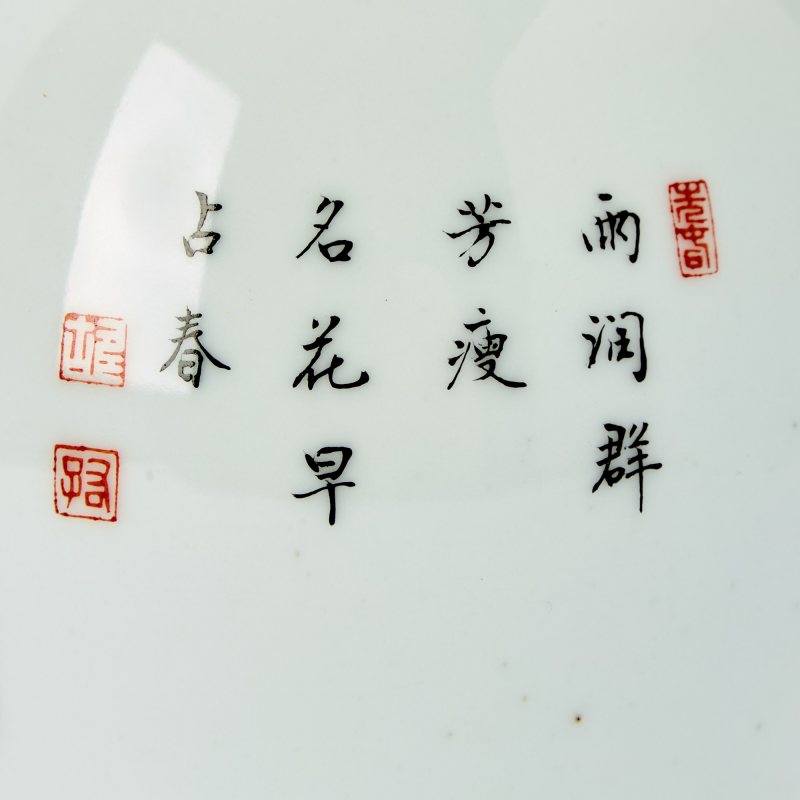 雨润群
芳瘦
名花早
占春